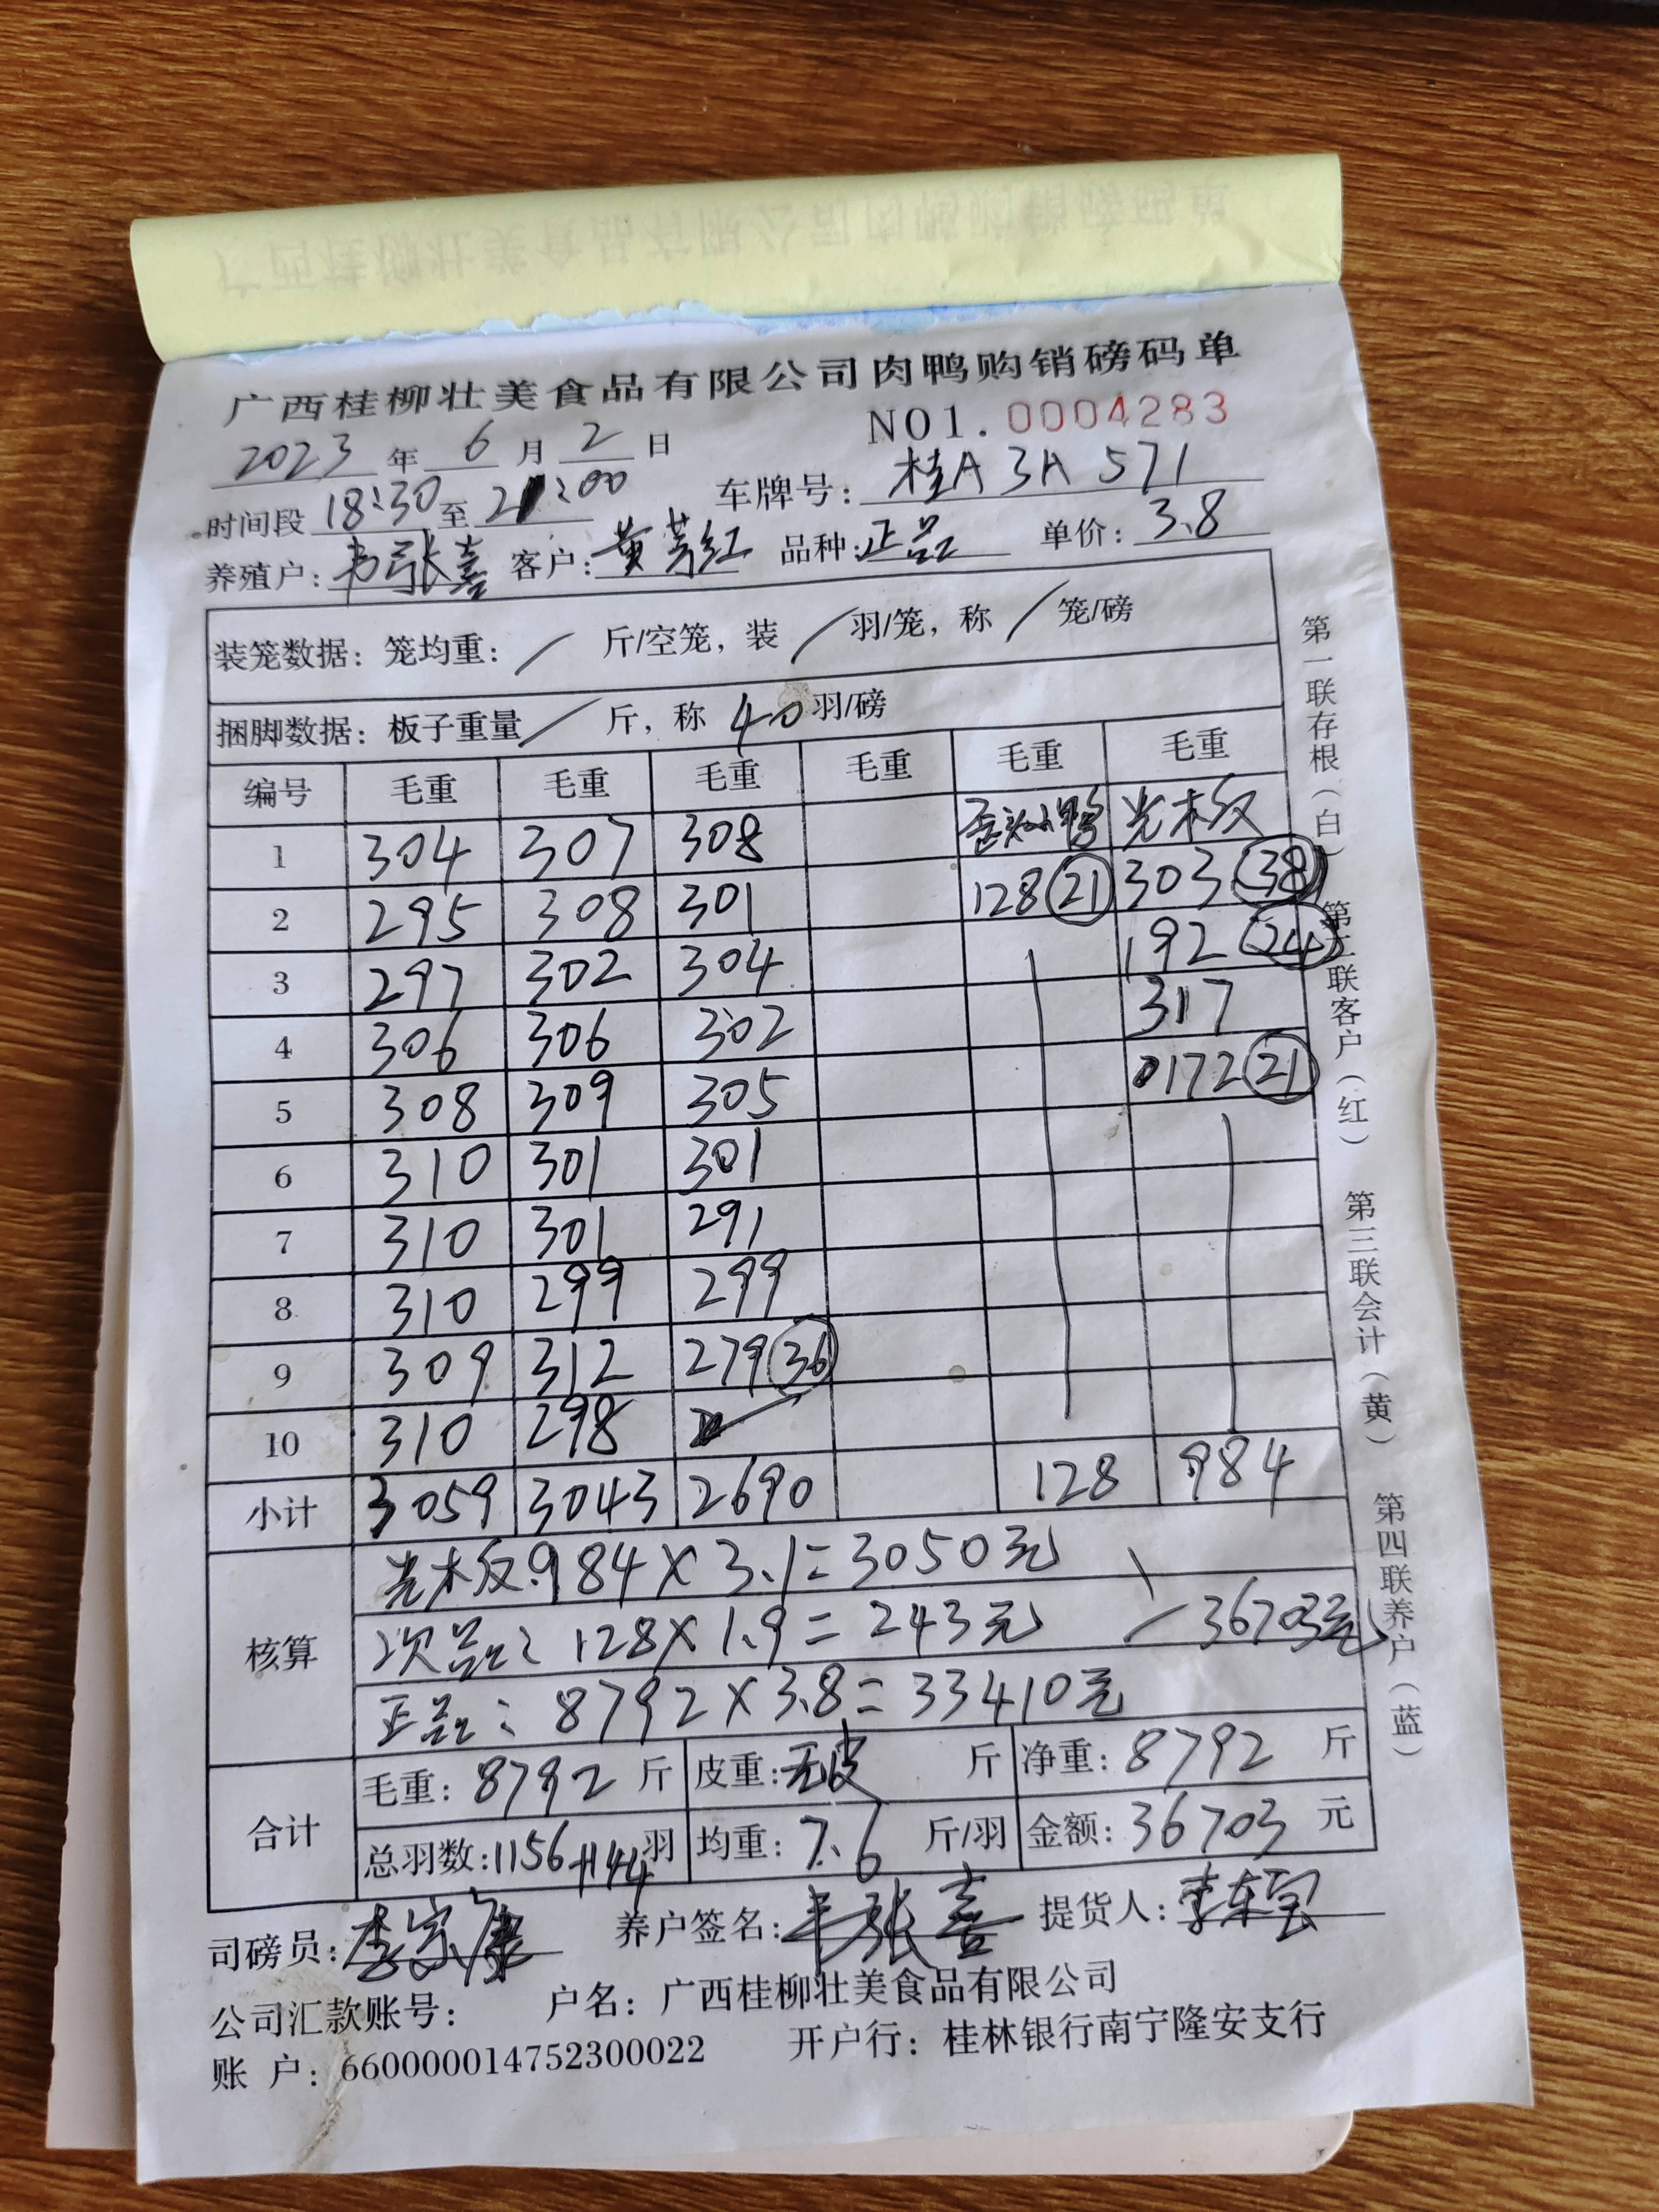 广西桂柳壮美食品有限公司肉鸭购销磅码单
2023 年 6 月 2 日 NO1. 0004283
时间段 18:30 至 21:00 车牌号: 桂A 3A 571
养殖户: 韦张喜 客户: 黄 红 品种: 正品 单价: 3.8
装笼数据: 笼均重: / 斤/空笼, 装 / 羽/笼, 称 / 笼/磅
捆脚数据: 板子重量 / 斤, 称 40 羽/磅
编号 毛重 毛重 毛重 毛重 毛重 毛重
1 304 307 308 歪头小鸭 光木板
2 295 308 301 128 21 303 38
3 297 302 304 192 24
4 306 306 302 317
5 308 309 305 0172 21
6 310 301 301
7 310 301 291
8 310 299 299
9 309 312 279 36
10 310 298
小计 3059 3043 2690 128 984
核算
光木板984×3.1=3050元
次品:128×1.9=243元 36703元
正品:8792×3.8=33410元
合计
毛重: 8792 斤 皮重: 无皮 斤 净重: 8792 斤
总羽数: 1156+144 羽 均重: 7.6 斤/羽 金额: 36703 元
司磅员: 李宗康 养户签名: 韦张喜 提货人: 李东
公司汇款账号: 户名: 广西桂柳壮美食品有限公司
账 户: 660000014752300022 开户行: 桂林银行南宁隆安支行
第一联存根(白) 第二联客户(红) 第三联会计(黄) 第四联养户(蓝)